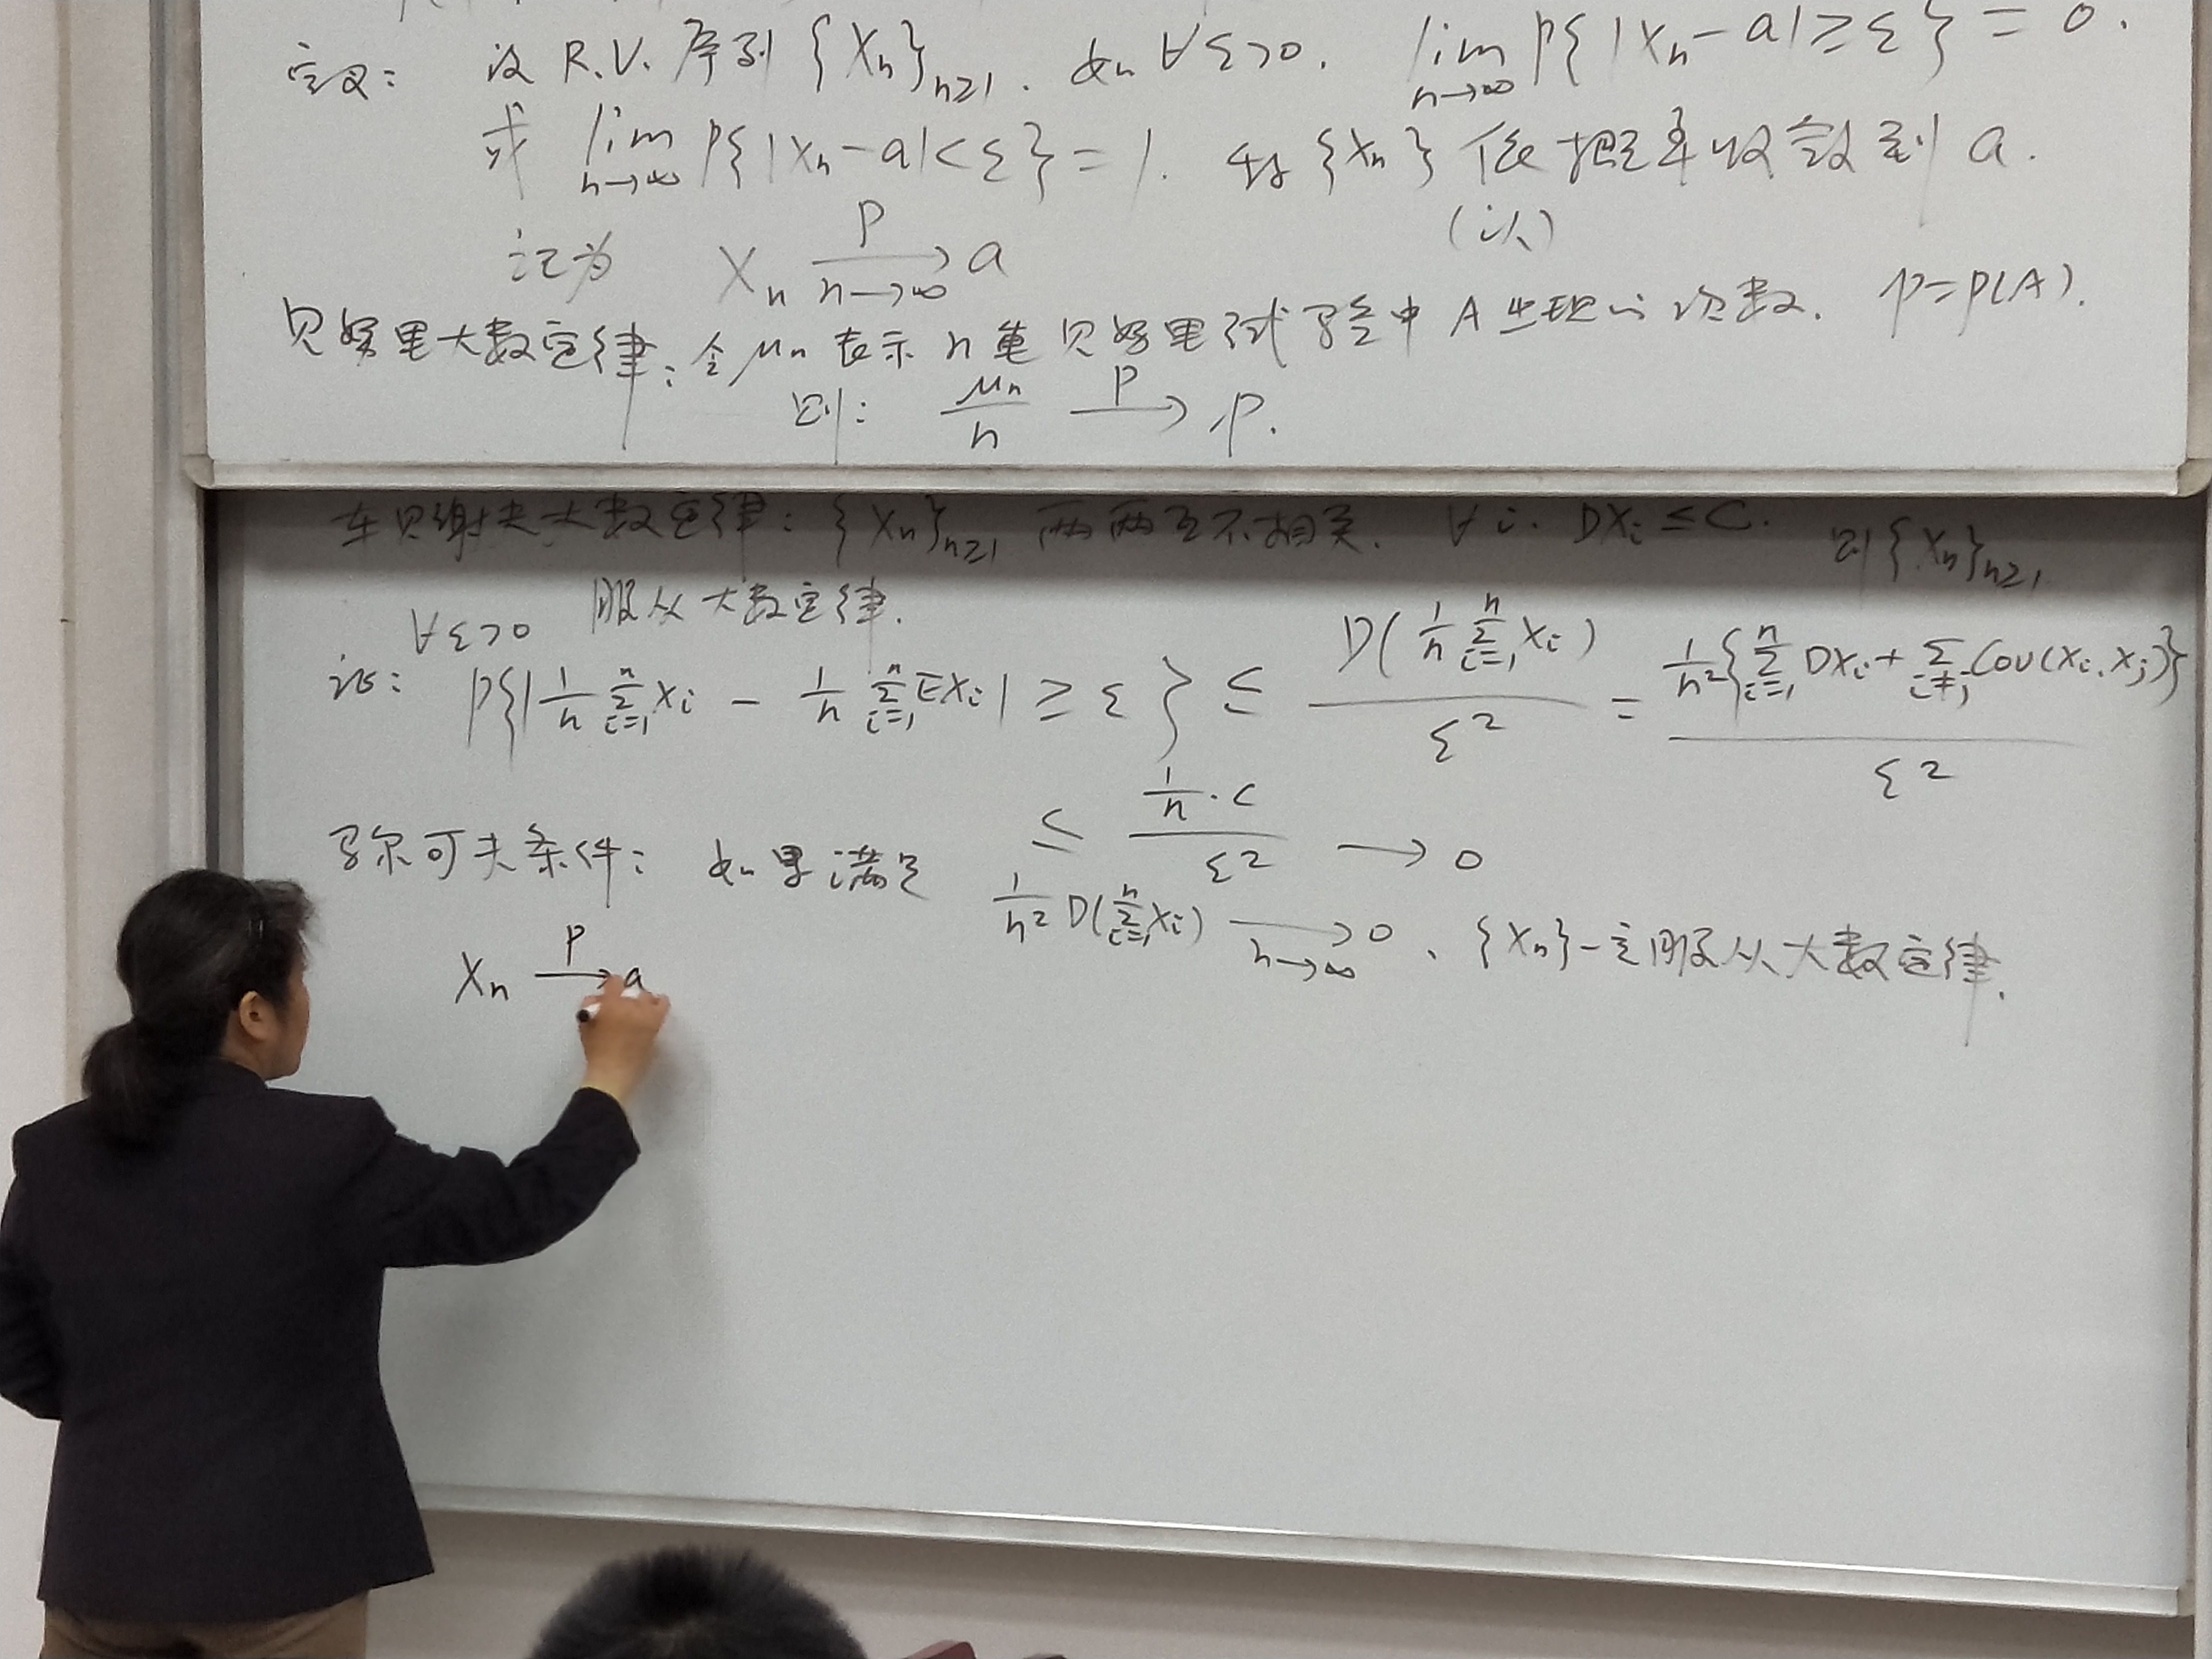 定义: 设 R.V. 序列 {Xn}n≥1. 如 ∀ε>0. lim n→∞ P{|Xn-a|≥ε}=0.
或 lim n→∞ P{|Xn-a|<ε}=1. 称{Xn}依概率收敛到 a.
(以)
记为 Xn —P→ n→∞ a
贝努里大数定律: 令μn表示n重贝努里试验中A出现的次数. p=P(A).
则: μn/n —P→ p.
车贝谢夫大数定律: {Xn}n≥1 两两互不相关. ∀i. DXi≤C. 则{Xn}n≥1
服从大数定律.
∀ε>0
证: P{|1/n Σ(i=1,n) Xi - 1/n Σ(i=1,n) EXi| ≥ ε} ≤ D(1/n Σ(i=1,n) Xi)/ε² = 1/n²{Σ(i=1,n) DXi + Σ(i≠j) Cov(Xi, Xj)}/ε²
≤ (1/n·C)/ε² → 0
马尔可夫条件: 如果满足 1/n² D(Σ(i=1,n) Xi) → n→∞ 0, {Xn}一定服从大数定律.
Xn —P→ a